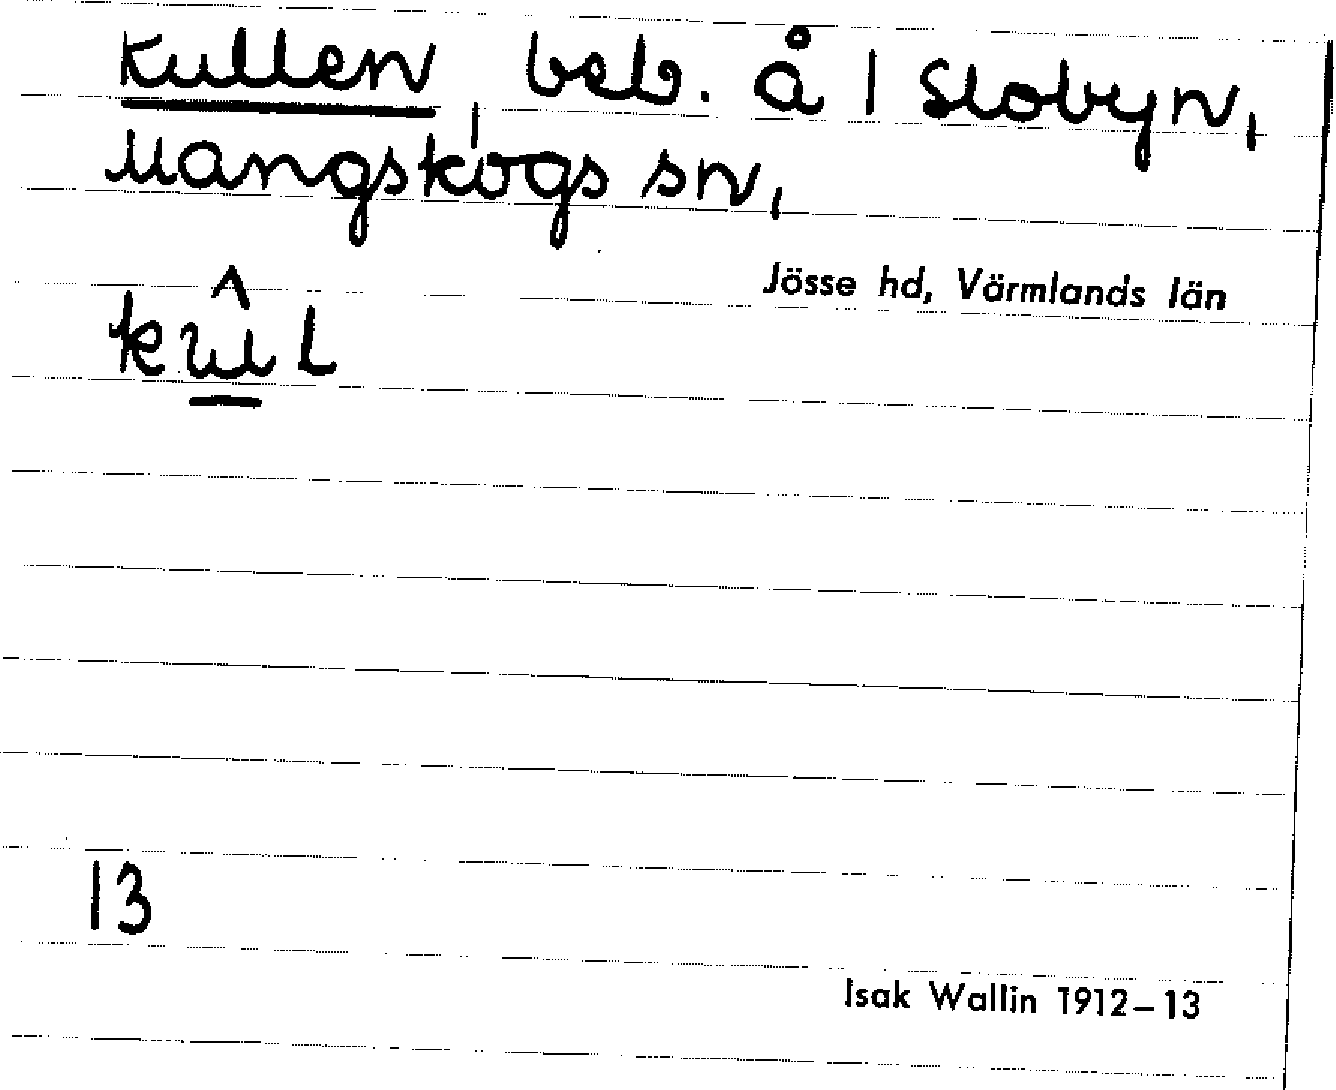 Kullen, beb. å 1 Slobyn,
Mangskogs sn,
Jösse hd, Värmlands län
13
Isak Wallin 1912–13